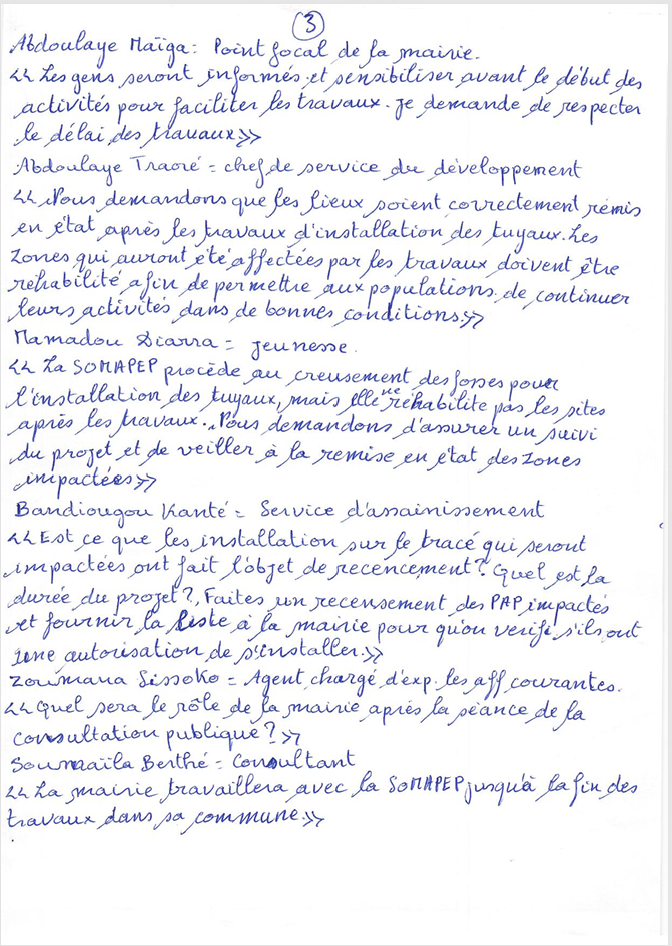 3
Abdoulaye Maïga: Point focal de la mairie.
<< Les gens seront informés et sensibiliser avant le début des
activités pour faciliter les travaux. je demande de respecter
le délai des travaux>>
Abdoulaye Traoré = chef de service du développement
<< Nous demandons que les lieux soient correctement remis
en état après les travaux d'installation des tuyaux. Les
zones qui auront été affectées par les travaux doivent être
réhabilité afin de permettre aux populations de continuer
leurs activités dans de bonnes conditions.>>
Mamadou Diarra = jeunesse.
<< La SOMAPEP procède au creusement des fosses pour
l'installation des tuyaux, mais elle ne réhabilite pas les sites
après les travaux. Nous demandons d'assurer un suivi
du projet et de veiller à la remise en état des zones
impactées>>
Bandiougou Kanté = Service d'assainissement
<< Est ce que les installation sur le tracé qui seront
impactées ont fait l'objet de recencement? Quel est la
durée du projet?, Faites un recensement des PAP impactés
et fournir la liste à la mairie pour qu'on verifi s'ils ont
une autorisation de s'installer.>>
Zoumana Sissoko = Agent chargé d'exp. les aff courantes.
<< Quel sera le rôle de la mairie après la séance de la
consultation publique?>>
Soumaïla Berthé = Consultant
<< La mairie travaillera avec la SOMAPEP jusqu'à la fin des
travaux dans sa commune.>>